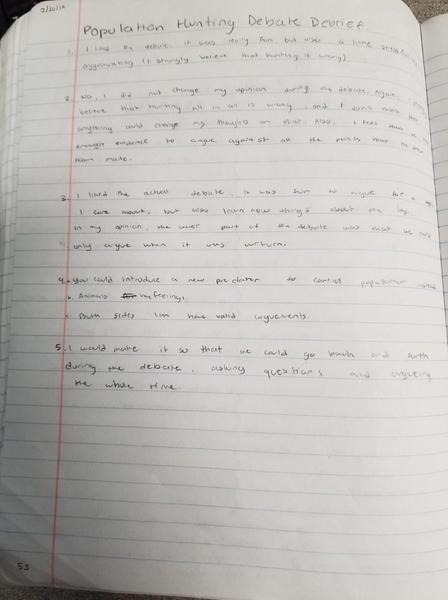 Population Hunting Debate Debrief
1. I liked the debate. it was really fun but also a little
aggravating (I strongly believe that hunting is wrong)
2. No, I did not change my opinion during the debate. Again, I
believe that hunting all in all is wrong, and I don't think that
anything could change my thoughts on that. Also, I feel there is
enough evidence to argue against all the points that the other
team made.
3. I liked the actual debate. It was fun to argue for a
I care about, but also learn new things about the topic.
in my opinion, the worst part of the debate was that we could
only argue when it was urturn.
4. a. you could introduce a new predater to control population instead
b. Animals have feelings
c. Both sides can have valid arguements.
5. I would make it so that we could go back and forth
during the debate, asking questions and argueing
the whole time.
53